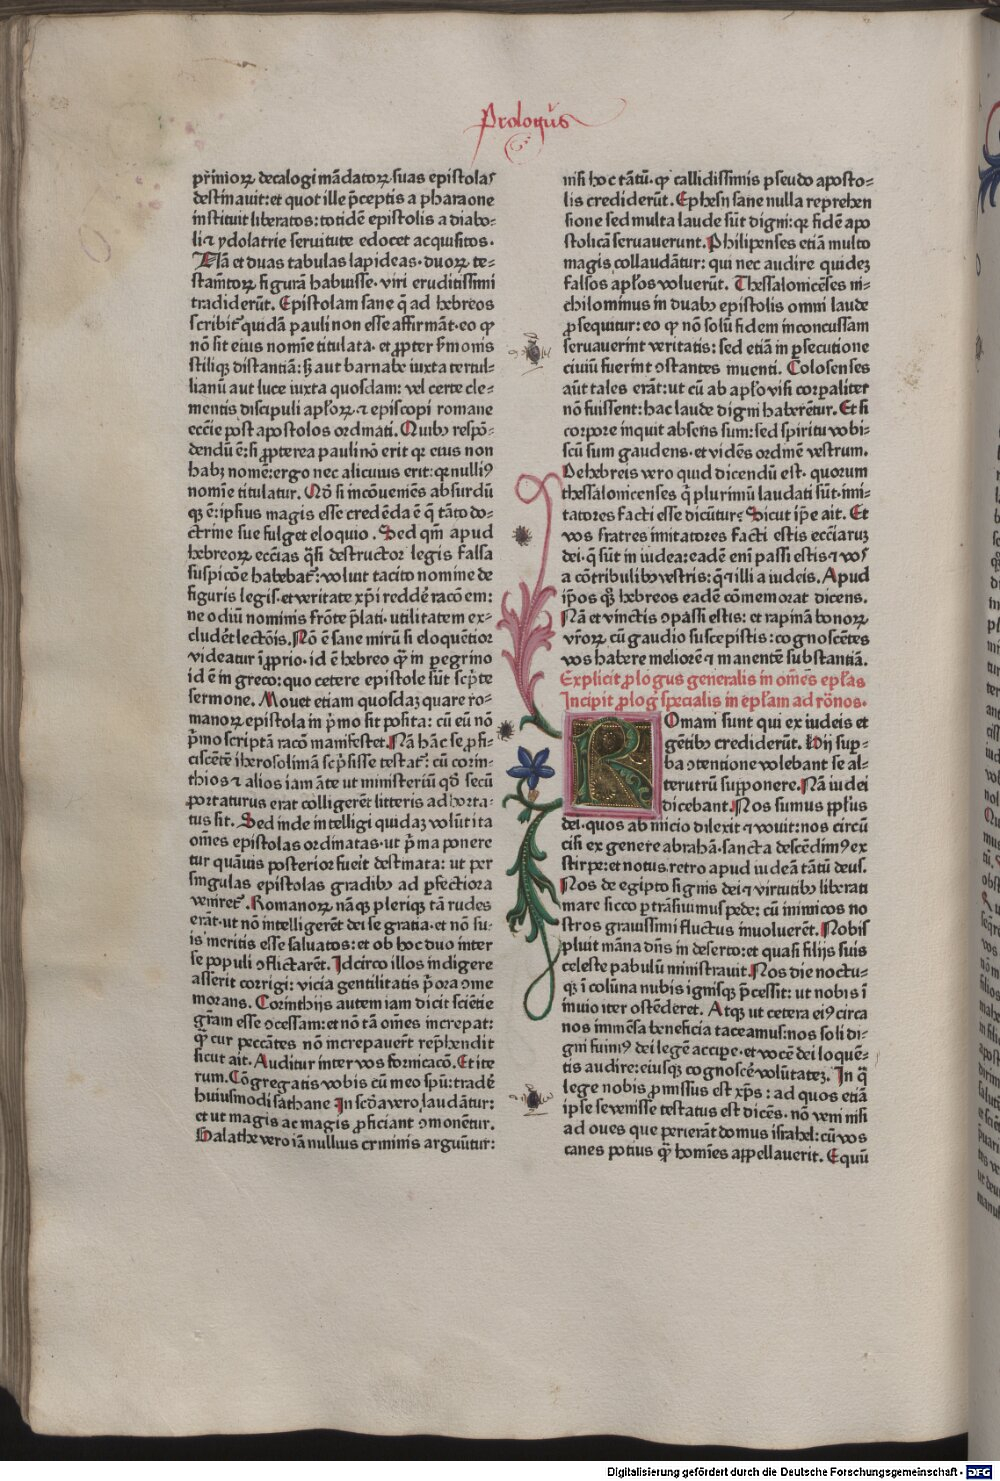 Prologus
pͬmoꝝ decalogi mādatoꝝ suas epistolas
destinauit: et quot ille p̄ceptis a pharaone
instituit liberatos: totidē epistolis a diabo⸗
li ⁊ ydolatrie seruitute edocet acquisitos.
Nā et duas tabulas lapideas. duoꝝ te⸗
stam̄toꝝ figurā habuisse. viri eruditissimi
tradiderūt. Epistolam sane q̄ ad hebreos
scribit᷑ quidā pauli non esse affirmāt. eo ꝙ
nō sit eius nomīe titulata. et ꝓpter s̄monis
stiliqꝫ distantiā: ſꝫ aut barnabe iuxta tertul⸗
lianū aut luce iuxta quosdam: vel certe cle⸗
mentis discipuli apl̓oꝝ. ⁊ episcopi romane
eccl̓ie post apostolos ordinati. Quibꝰ respō⸗
dendū ē: si ꝓpterea pauli nō erit qꝛ eius non
habꝫ nomē: ergo nec alicuius erit: qꝛ nulliꝰ
nomīe titulatur. Qđ si incōueniēs absurdū
qꝫ ē: ipsius magis esse credēda ē q̄ tāto do⸗
ctrine sue fulget eloquio. Sed qm̄ apud
hebreoꝝ eccl̓ias q̄si destructor legis falsa
suspicōe habebat᷑: voluit tacito nomine de
figuris legis. et veritate xp̄i reddē racōem:
ne odiū nominis frōte p̄lati. utilitatem ex⸗
cludēt lectōis. Nō ē sane mirū si eloquētior
videatur ī ꝓprio. id ē hebreo qͣ̄ in ꝑegrino
id ē in greco: quo cetere epistole sūt scp̄te
sermone. Mouet etiam quosdaꝫ quare ro⸗
manoꝝ epistola in p̄mo sit posita: cū eū nō
p̄mo scriptā racō manifestet. Nā hāc se ꝓfi⸗
ciscētē iherosolimā scp̄sisse testat᷑: cū corin⸗
thios ⁊ alios iam āte ut ministeriū qđ secū
ꝓportaturus erat colligerēt litteris ad horta⸗
tus sit. Sed inde intelligi quidaꝫ volūt ita
om̄es epistolas ordinatas. ut p̄ma ponere
tur quāuis posterior fueit destinata: ut per
singulas epistolas gradibꝰ ad ꝑfectiora
veniret᷑. Romanoꝝ nāqꝫ pleriqꝫ tā rudes
erāt. ut nō intelligerēt dei se gratia. et nō su⸗
is meritis esse saluatos: et ob hoc duo inter
se populi ꝯflictarēt. Idcirco illos indigere
asserit corrigi: vicia gentilitatis p̄ora ꝯme
morans. Corinthijs autem iam dicit sciētie
gr̄am esse ꝯcessam: et nō tā om̄es increpat:
qͣ̄ cur peccātes nō increpauer̄t rep̄hendit
sicut ait. Auditur inter vos fornicacō. Et ite
rum. Cōgregatis vobis cū meo spū: tradē
huiusmodi sathane In scd̄a vero laudātur:
et ut magis ac magis ꝓficiant ꝯmonētur.
Galathe vero iā nullius criminis arguūtur:
nisi hoc tātū. ꝙ callidissimis pseudo aposto⸗
lis crediderūt. Ephesij sane nulla reprehen
sione sed multa laude sūt digni: qꝛ fidē apo
stolicā seruauerunt. Philipenses etiā multo
magis collaudātur: qui nec audire quideꝫ
falsos apl̓os voluerūt. Thessalonicēses ni⸗
chilominus in duabꝰ epistolis omni laude
ꝓsequitur: eo ꝙ nō solū fidem inconcussam
seruauerint veritatis: sed etiā in ꝑsecutione
ciuiū fuerint ꝯstantes inuenti. Colosenses
aūt tales erāt: ut cū ab apl̓o visi corꝑaliter
nō fuissent: hac laude digni haberētur. Et si
corpore inquit absens sum: sed spiritu vobi⸗
scū sum gaudens. et vidēs ordinē vestrum.
De hebreis vero quid dicendū est. quorum
thessalonicenses q̄ plurimū laudati sūt. imi⸗
tatores facti esse dicūtur? Sicut ip̄e ait. Et
vos fratres imitatores facti estis eccl̓iaruꝫ
dei. q̄ sūt in iudea: eadē eni passi estis ⁊ vos
a cōtribulibꝰ vestris: q̄ ⁊ illi a iudeis. Apud
ip̄os qꝫ hebreos eadē cōmemorat dicens.
Nā et vinctis ꝯpassi estis: et rapinā bonoꝝ
vr̄oꝝ cū gaudio suscepistis: cognoscētes
vos habere meliorē ⁊ manentē substantiā.
Explicit ꝓlogus generalis in om̄es epl̓as
Incipit ꝓlogꝰ specialis in epl̓am ad rōnos.
Romani sunt qui ex iudeis et
gētibꝰ crediderūt. Hij suꝑ⸗
ba ꝯtentione volebant se al⸗
terutrū supponere. Nā iudei
dicebant. Nos sumus ppl̓us
dei. quos ab inicio dilexit ⁊ fouit: nos circū
cisi ex genere abrahā. sancta descēdimꝰ ex
stirpe: et notus retro apud iudeā tātū deus.
Nos de egipto signis dei ⁊ virtutibꝰ liberati
mare sicco ꝑtrāsiuimus pede: cū inimicos no
stros grauissimi fluctus inuoluerēt. Nobis
pluit māna dn̄s in deserto: et quasi filijs suis
celeste pabulū ministrauit. Nos die noctu⸗
qꝫ ī colūna nubis ignisqꝫ p̄cessit: ut nobis ī
inuio iter ostēderet. Atqꝫ ut cetera eiꝰ circa
nos immēsa beneficia taceamus: nos soli di⸗
gni fuimꝰ dei legē accipe. et vocē dei loquē⸗
tis audire: eiusqꝫ cognoscē volūtateꝫ. In q̄
lege nobis ꝓmissus est xp̄s: ad quos etiā
ipse se venisse testatus est dicēs. nō veni nisi
ad oues que perierāt domus israhel: cū vos
canes potius qͣ̄ homīes appellauerit. Equū
Digitalisierung gefördert durch die Deutsche Forschungsgemeinschaft - DFG